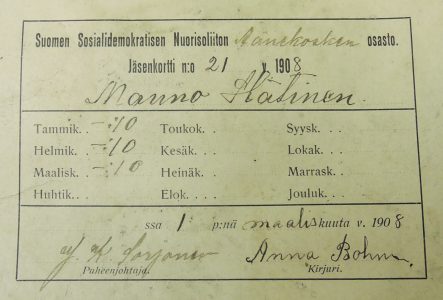 Suomen Sosialidemokratisen Nuorisoliiton Äänekosken osasto.
Jäsenkortti n:o 21 v. 1908
Manno Hätinen.
Tammik. . -:10 Toukok. . . Syysk. . .
Helmik. . -:10 Kesäk. . . Lokak. . .
Maalisk. . -:10 Heinäk. . . Marrask. . .
Huhtik. . . Elok. . . . Jouluk. . .
ssa 1 p:nä maaliskuuta v. 1908
K. Sorjonen Anna Bohm
Puheenjohtaja. Kirjuri.